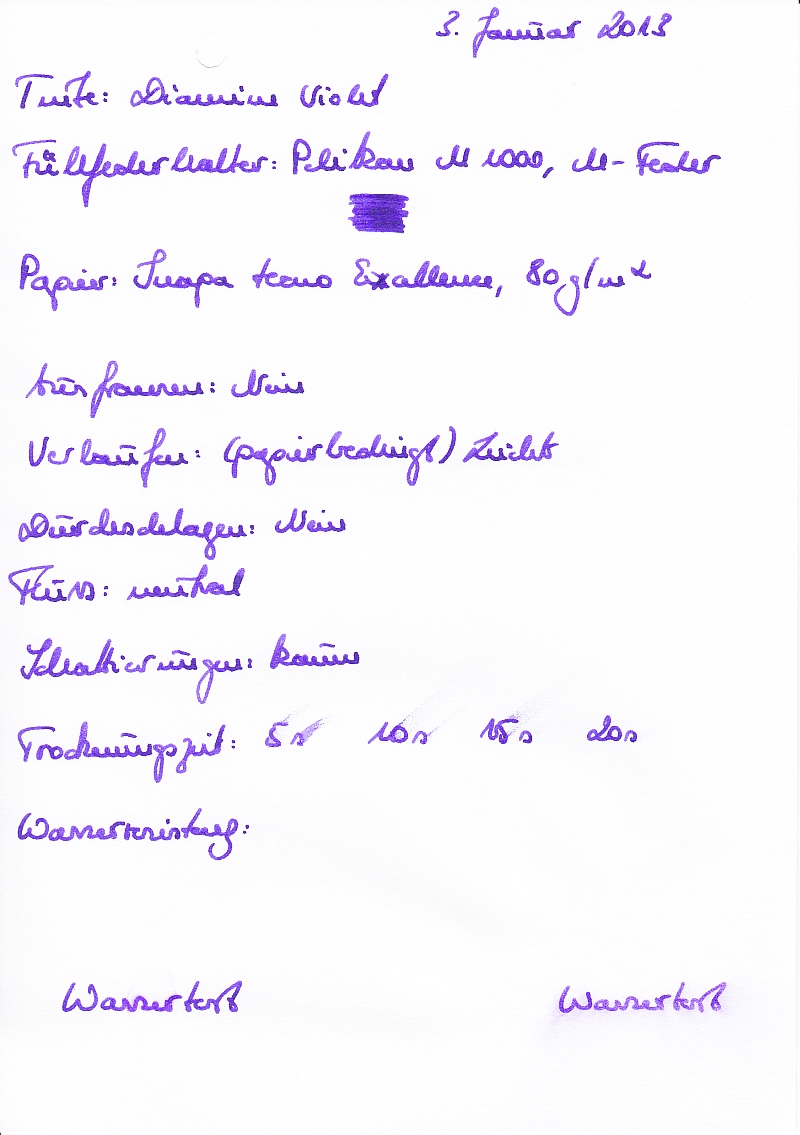 3. Januar 2013
Tinte: Diamine Violet
Füllfederhalter: Pelikan M 1000, M-Feder
Papier: Inapa tecno Excellence, 80 g/m²
Ausfransen: Nein
Verlaufen: (papierbedingt) Leicht
Durchschlagen: Nein
Fluss: neutral
Schattierungen: kaum
Trocknungszeit: 5s 10s 15s 20s
Wasserfestigkeit:
Wassertest Wassertest